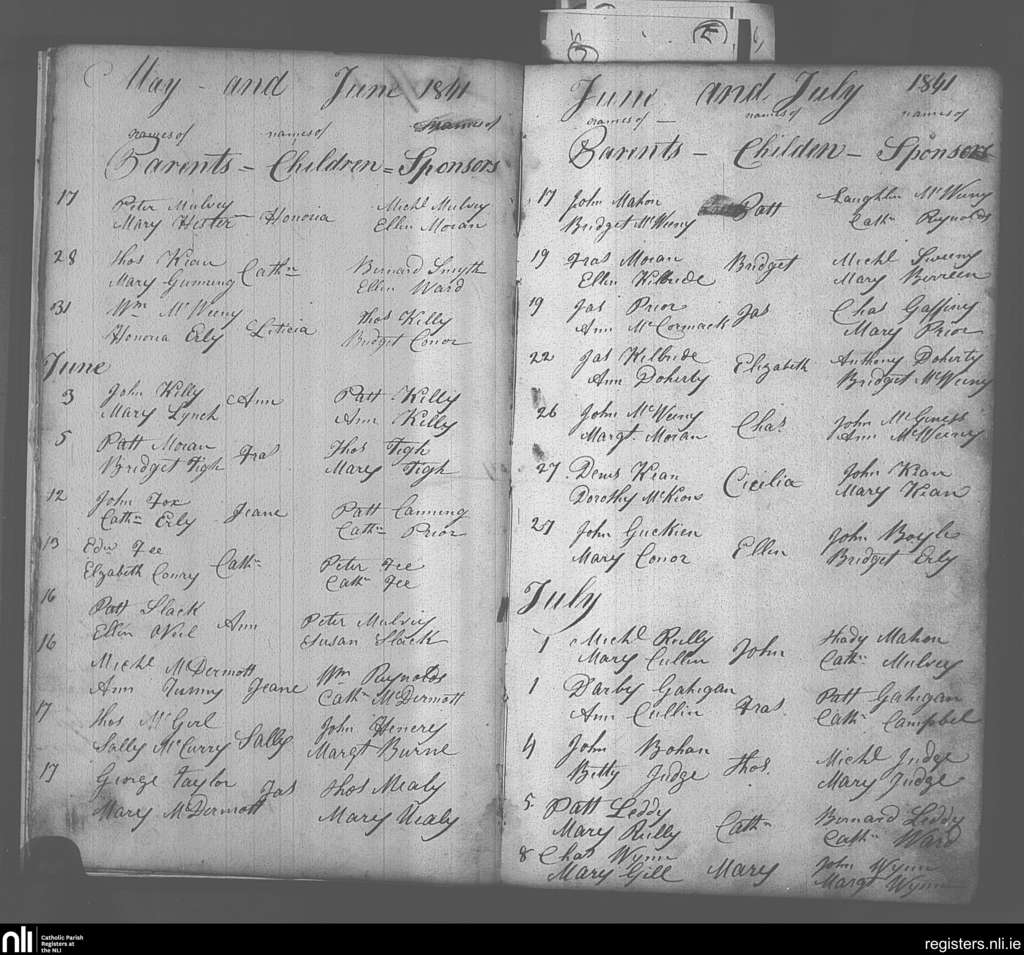 May - and June 1841
names of names of names of
Parents = Children = Sponsors
17 Peter Mulvey Michl Mulvey
Mary Hester Honoria Ellin Moran
28 Thos Kian Bernard Smyth
Mary Gunning Cathn Ellin Ward
31 Wm McWeeny Thos Killy
Honoria Erly Leticia Bridget Conor
June
3 John Killy Ann Patt Killy
Mary Lynch Ann Killy
5 Patt Moran Fras Thos Tigh
Bridget Tigh Mary Tigh
12 John Fox Jeane Patt Canning
Cathn Erly Cathn Prior
13 Edw Fee Cathn Peter Fee
Elizabeth Conry Cathn Fee
16 Patt Slack Ann Peter Mulvey
Ellin ONeil Susan Slack
16 Michl McDermott Wm Reynolds
Ann Tunny Jeane Cathn McDermott
17 Thos McGirl John Henery
Sally McCurry Sally Margt Burne
17 George Taylor Jas Thos Mealy
Mary McDermott Mary Mealy
June and July 1841
names of - names of names of
Parents - Childen - Sponsors
17 John Mahon Patt Laughlin McWeeny
Bridget McWeeny Cathn Reynolds
19 Fras Moran Bridget Michl Sweeny
Ellin Kilbride Mary Berreen
19 Jas Prior Jas Chas Gaffiny
Ann McCormack Mary Prior
22 Jas Kilbride Elizabeth Anthony Doherty
Ann Doherby Bridget McWeeny
26 John McWeeny Chas John McGiness
Margt. Moran Ann McWeeny
27 Denis Kian Cicilia John Kian
Dorothy McKiow Mary Kian
27 John Guckien Ellin John Boyle
Mary Conor Bridget Erly
July
1 Michl Reilly John Thady Mahon
Mary Cullin Cathn Mulvey
1 Darby Gahigan Fras Patt Gahigan
Ann Cullin Cathn Campbel
4 John Bohan Thos. Michl Judge
Bitty Judge Mary Judge
5 Patt Leddy Cathn Bernard Leddy
Mary Rilly Cathn Ward
8 Chas Wynn Mary John Wynn
Mary Gill Margt Wynn
nli Catholic Parish
Registers at
the NLI
registers.nli.ie